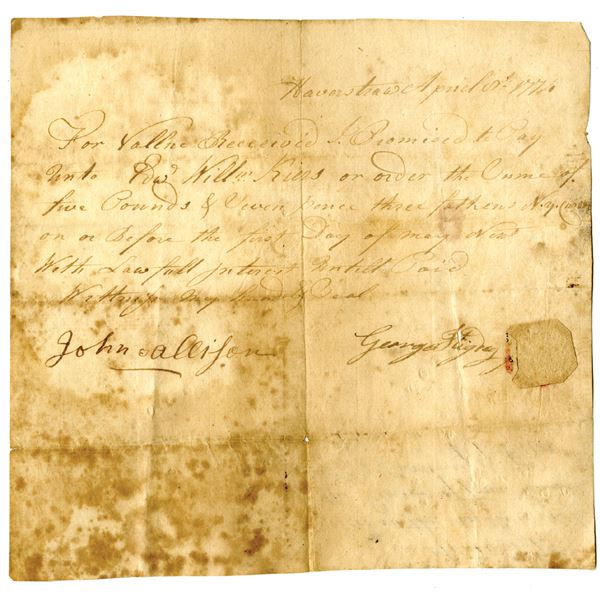 Haverstraw April 1774
For Vallue Received I Promised to Pay
Unto Edwd Willm Kiers or order the Sume of
five Pounds & Seven pence three fathens N. y. Curr
on or Before the first Day of may Next
With Lawfull Interest Untill Paid
Wittness My Hand & Seal
John allison
George